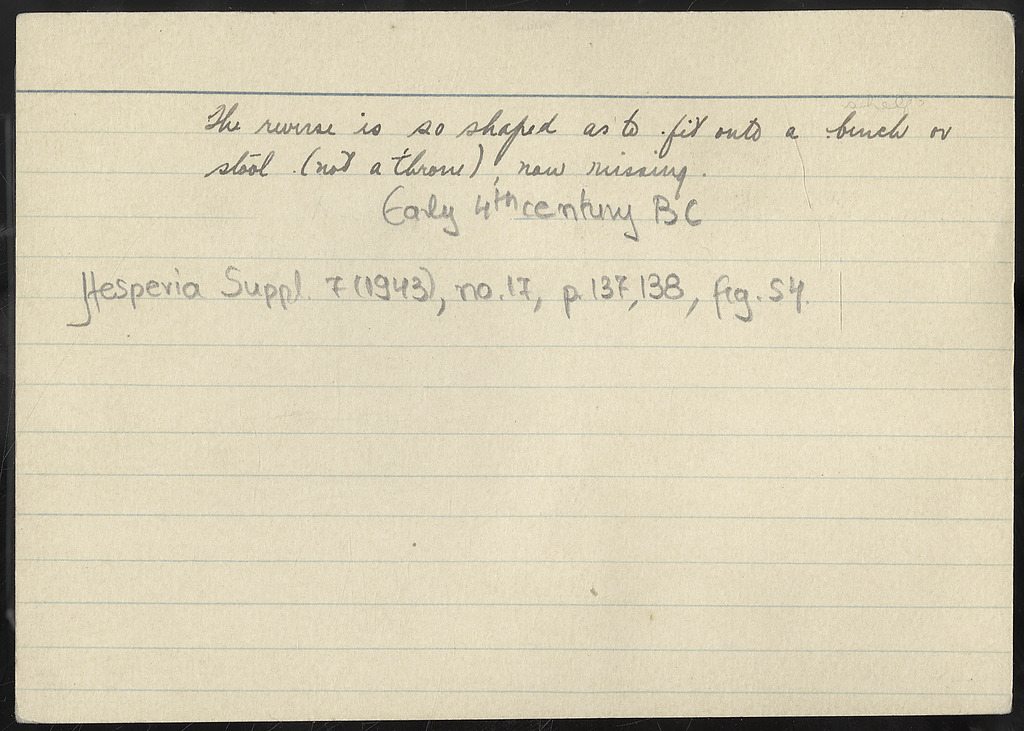 The reverse is so shaped as to fit onto a bench or
stool (not a throne), now missing.
Early 4th century BC
Hesperia Suppl. 7 (1943), no. 17, p. 137,138, fig. 54.